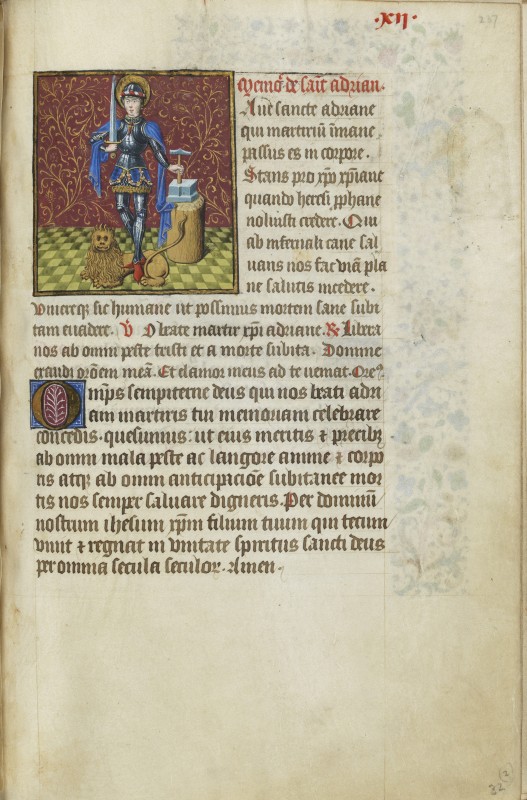 ·xij·
237
Memoꝛ̄ de saīt adrian·
Aue sancte adriane
qui martiriū īmane
passus es in corpore·
Stans pro xp̄o xp̄iane
quando heresi prophane
noluisti credere· Qui
ab infernali cane sal
uans nos fac viā pla
ne salutis incedere·
viuereq; sic humane ut possimus mortem sane subi
tam euadere· ℣ O beate martir xp̄i adriane· ℟ Libera
nos ab omni peste tristi et a morte subita· Domine
exaudi orōem meā· Et clamor meus ad te ueniat· Ore
Omp̄s sempiterne deus qui nos beati adri
ani martiris tui memoriam celebrare
concedis· quesumus: ut eius meritis ⁊ precibꝫ
ab omni mala peste ac langore anime ⁊ corpo
ris atqꝫ ab omni anticipaciōe subitanee mor
tis nos semper saluare digneris· Per dominū
nostrum ihesum xp̄m filium tuum qui tecum
viuit ⁊ regnat in vnitate spiritus sancti deus
per omnia secula seculoꝝ· Amen·
32